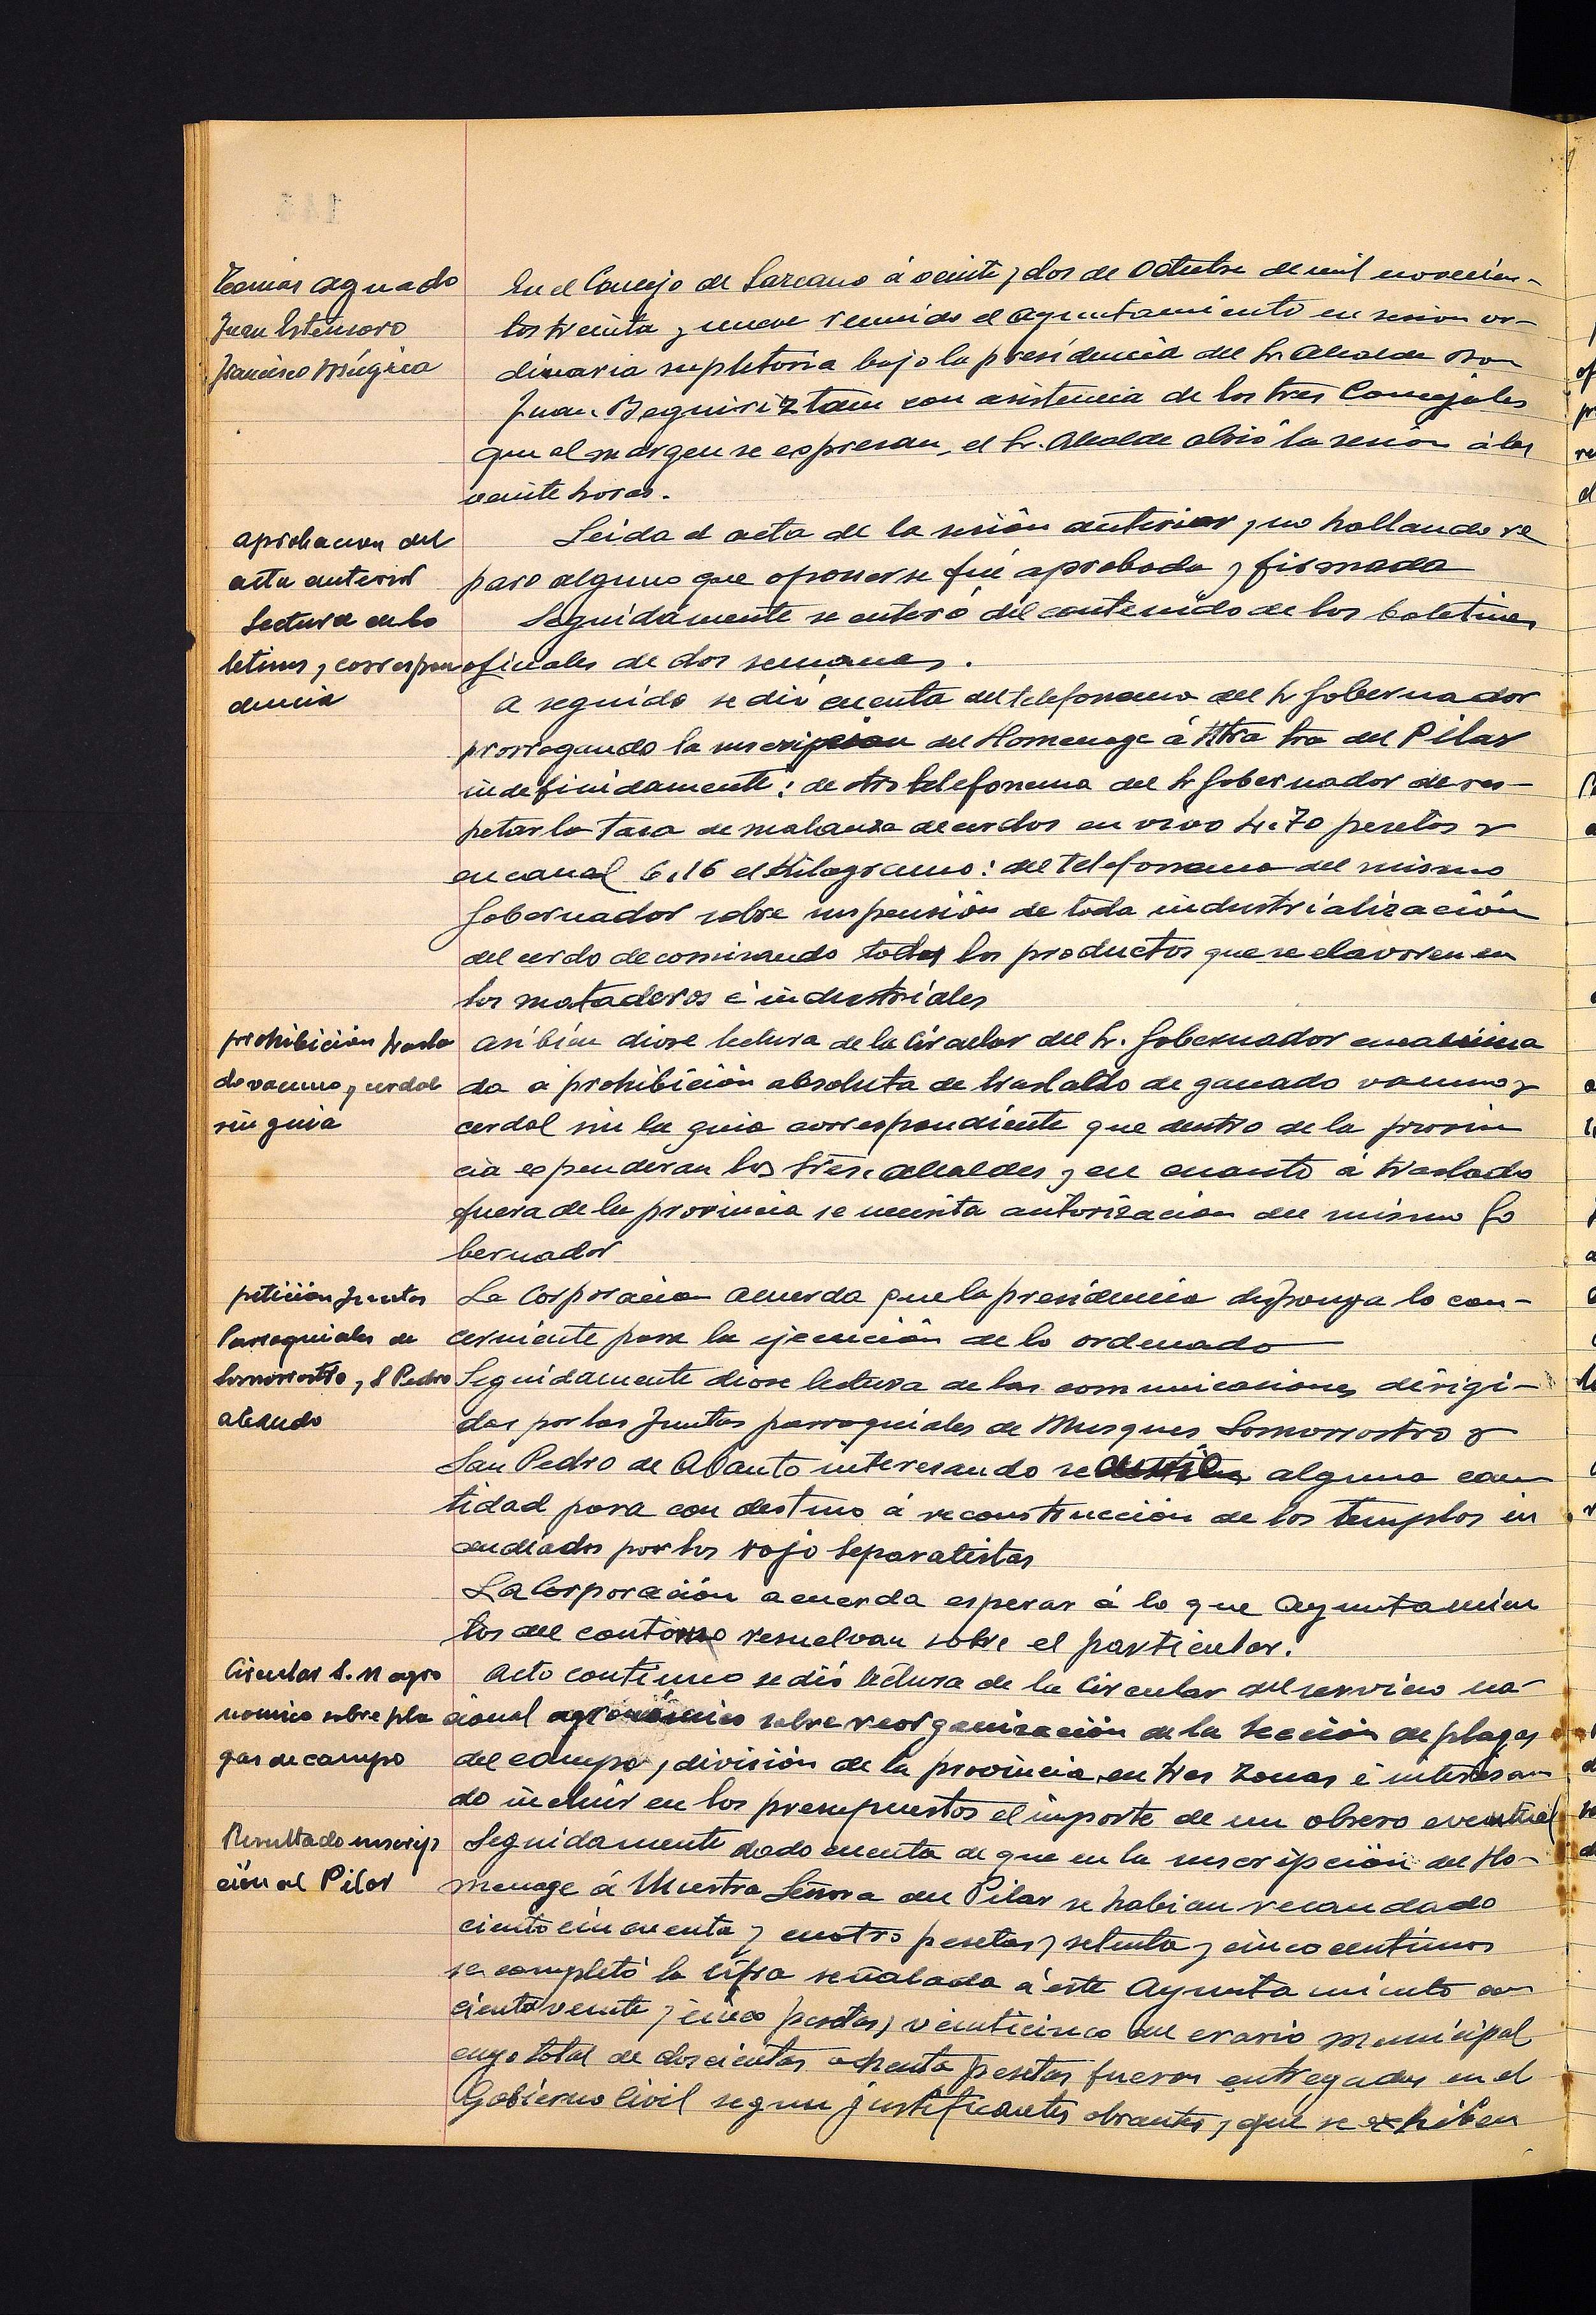 Tomas Aguado
Juan Estensoro
Francisco Múgica
En el Concejo de Larcano á veinte y dos de Octubre de mil novecien-
tos treinta y nueve reunido el ayuntamiento en sesion or-
dinaria supletoria bajo la presidencia del Sr. Alcalde Don
Juan Beguiriztain con asistencia de los tres Concejales
que al margen se espresan, el Sr. Alcalde abrió la sesión á las
veinte horas.
aprobacion del
acta anterior
Leida el acta de la sesión anterior y no hallando re
paro alguno que oponerse fué aprobada y firmada
Lectura de bo
letines y correspon
dencia
Seguidamente se enteró del contenido de los boletines
oficiales de dos semanas.
A seguido se dió cuenta del telefonema del Sr Gobernador
prorrogando la suscripcion del Homenage á Ntra Sra del Pilar
indefinidamente: de otro telefonema del Sr Gobernador de res-
petar la tasa de matanza de cerdos en vivo 4.70 pesetas y
en canal 6,16 el Kilogramo: del telefonema del mismo
Gobernador sobre suspensión de toda industrialización
del cerdo decomisando todos los productos que se elavoren en
los mataderos é industriales
prohibición trasla
do vacuno y cerdal
sin guia
Asi bien diose lectura de la Circular del Sr. Gobernador encamina
da a prohibición absoluta de traslado de ganado vacuno y
cerdal sin la guia correspondiente que dentro de la provin
cia espenderan los Sres. alcaldes y en cuanto á traslado
fuera de la provincia se necesita autorizacion del mismo Go
bernador
petición Juntas
Parroquiales de
Somorrostro y S Pedro
abando
La Corporacion acuerda que la presidencia disponga lo con-
cerniente para la ejecución de lo ordenado
Seguidamente diose lectura de las comunicaciones dirigi-
das por las Juntas parroquiales de Musques Somorrostro y
San Pedro de Abanto interesando se alguna can
tidad para con destino á reconstrucción de los templos in
cendiados por los rojo separatistas
La Corporación acuerda esperar á lo que Ayuntamien
tos del contorno resuelvan sobre el particular.
Circular S. N agro
nomico sobre pla
gas de campo
Acto contínuo se dió lectura de la Circular del servicio na-
cional agronómico sobre reorganización de la Sección de plagas
del campo, división de la provincia en tres zonas é interesan
do incluir en los presupuestos el importe de un obrero eventual
Resultado suscrip
ción al Pilar
Seguidamente dado cuenta de que en la suscripción del Ho-
menage á Nuestra Señora del Pilar se habian recaudado
ciento cincuenta y cuatro pesetas y setenta y cinco centimos
se completó la cifra señalada á este Ayuntamiento con
ciento veinte y cinco pesetas y veinticinco del erario municipal
cuyo total de doscientas ochenta pesetas fueron entregadas en el
Gobierno Civil segun justificantes obrantes y que se exhiben